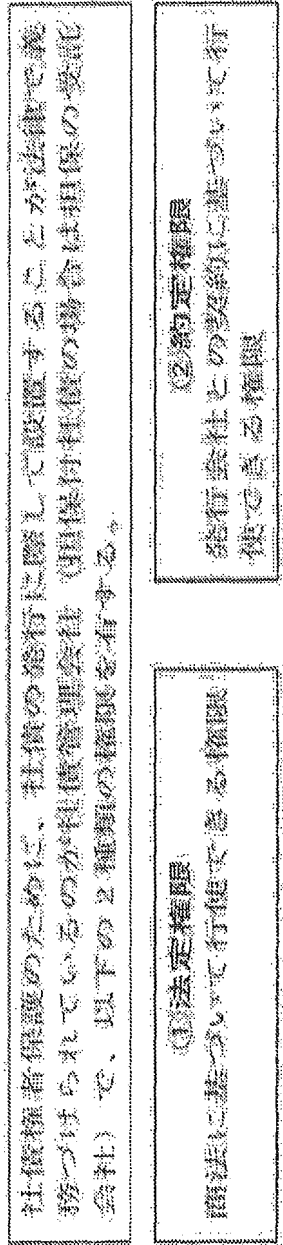 社債権者保護のために、社債の発行に際して設置することが法律で義
務づけられているのが社債管理会社（担保付社債の場合は担保の受託
会社）で、以下の2種類の権限を有する。
①法定権限
商法に基づいて行使できる権限
②約定権限
発行会社との契約に基づいて行
使できる権限